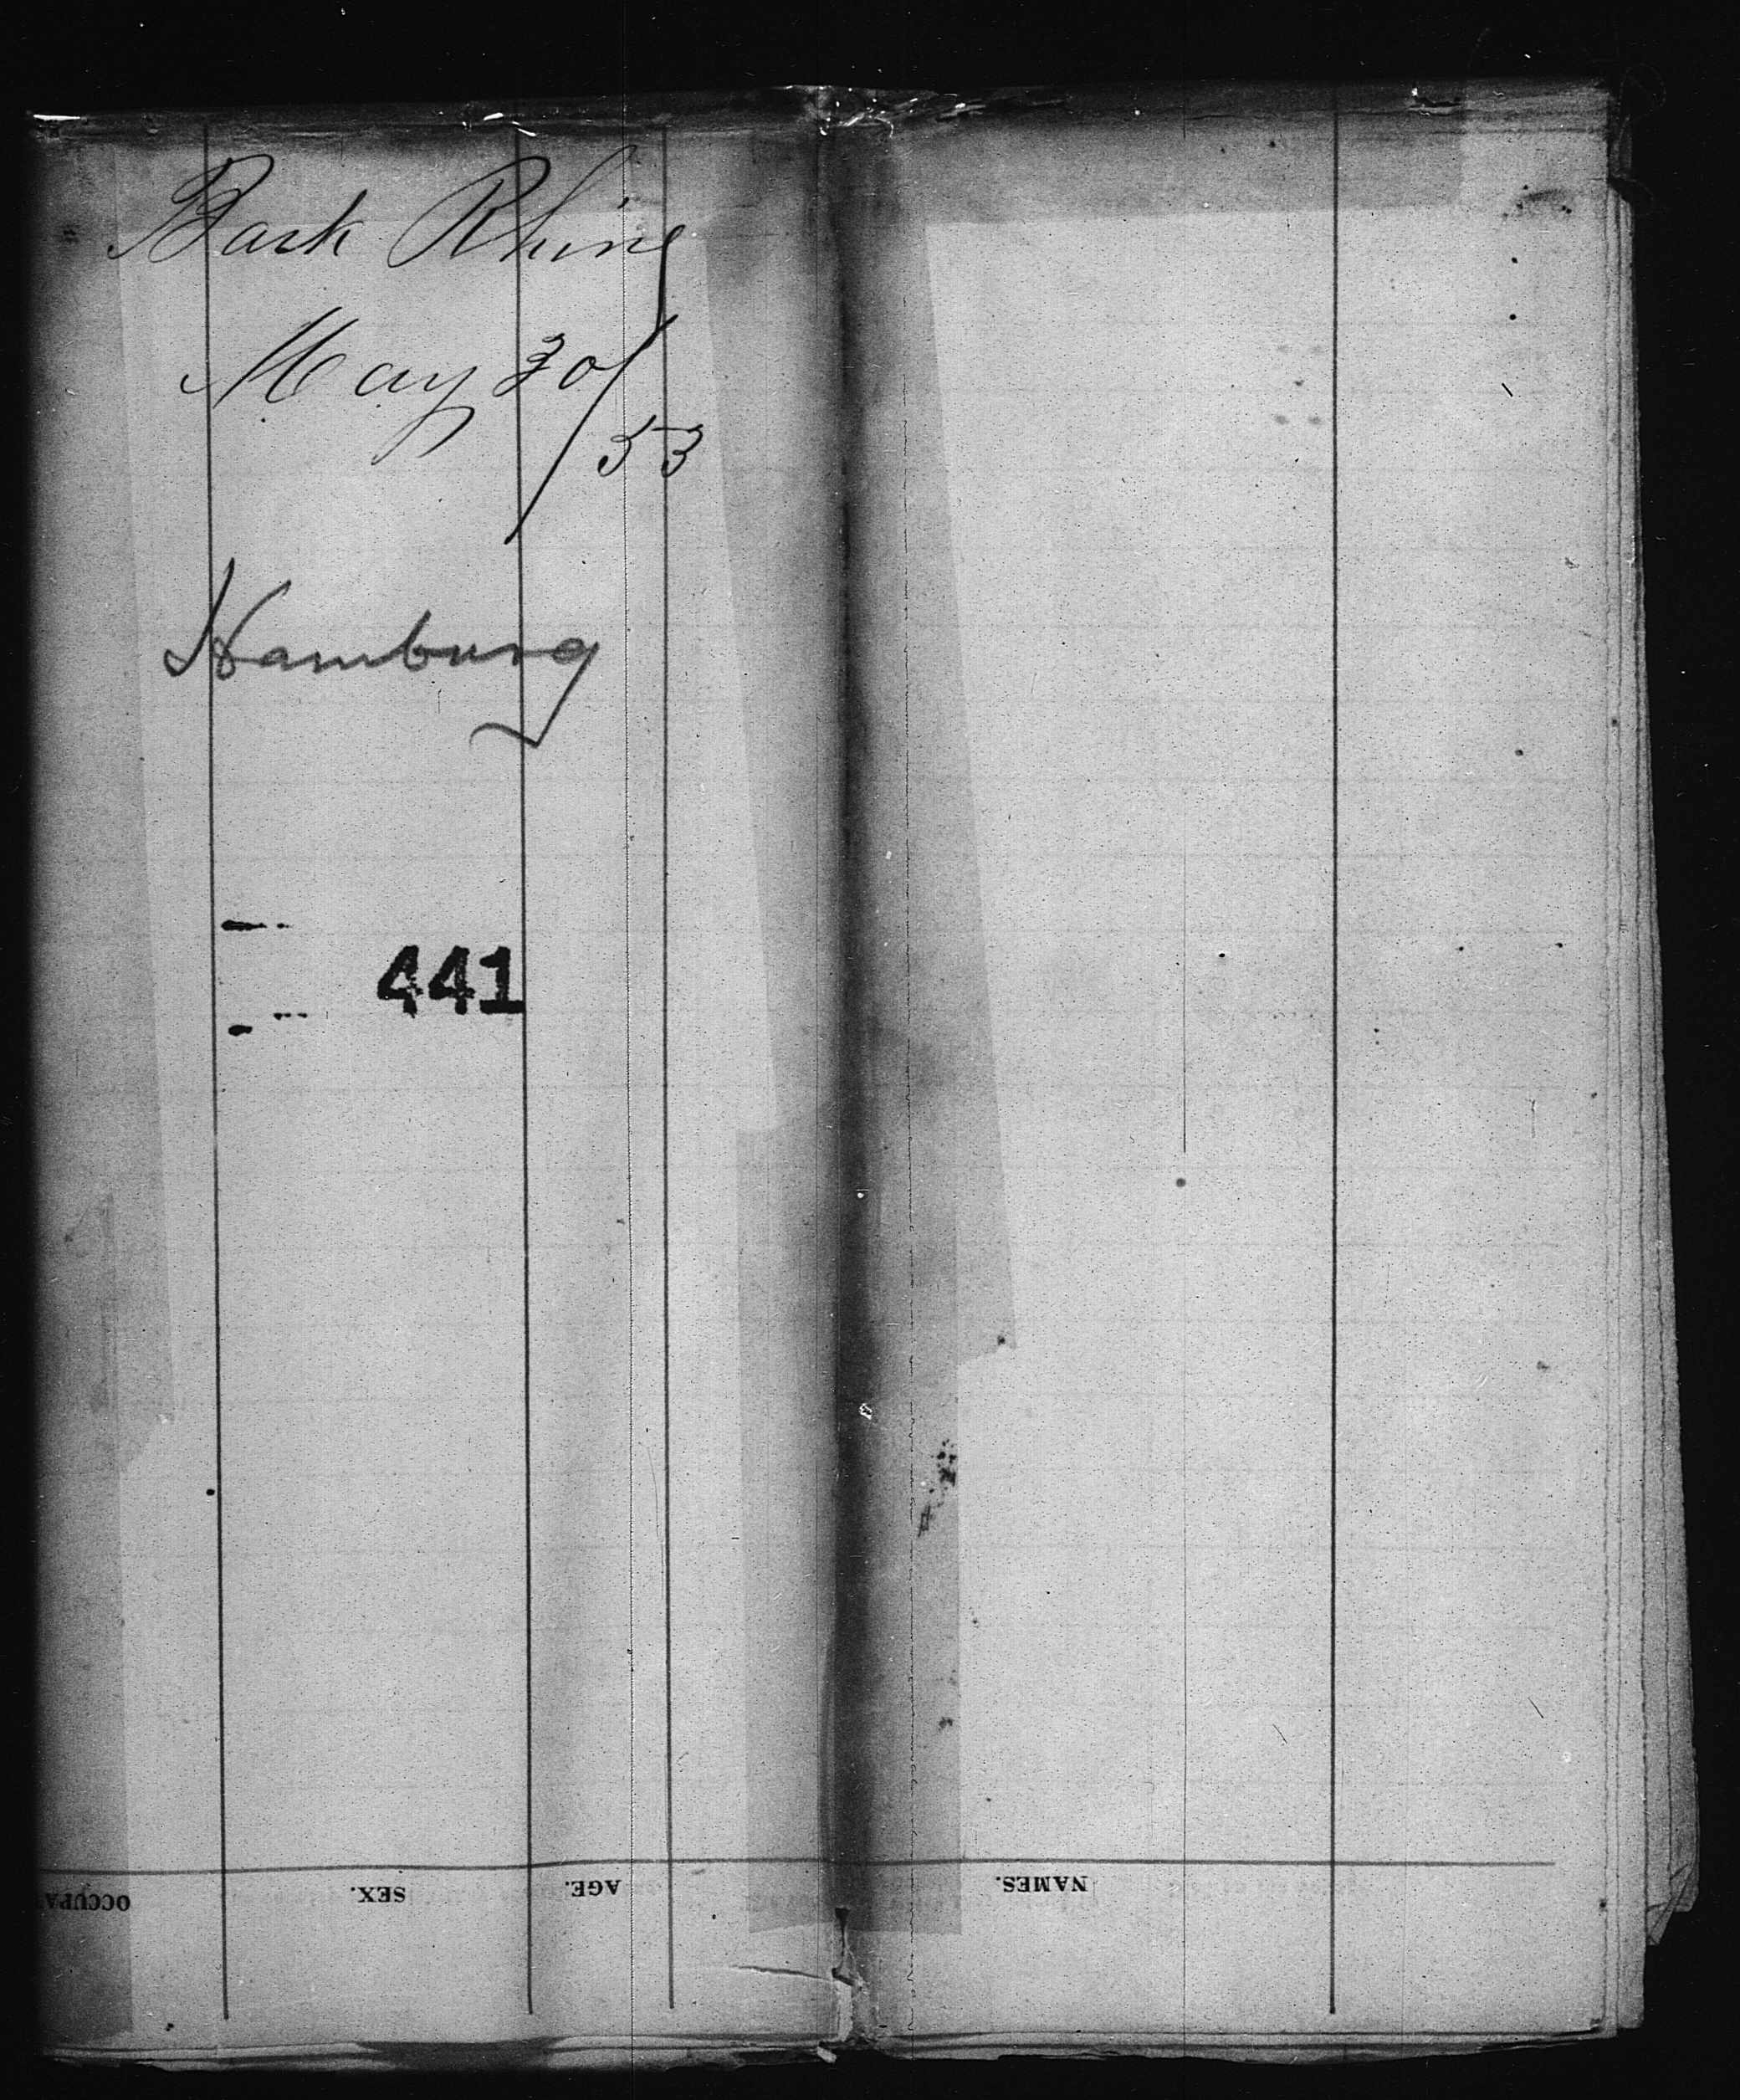 Bark Rhine
May 30/53
Hamburg
441
NAMES.
AGE.
SEX.
OCCUPA